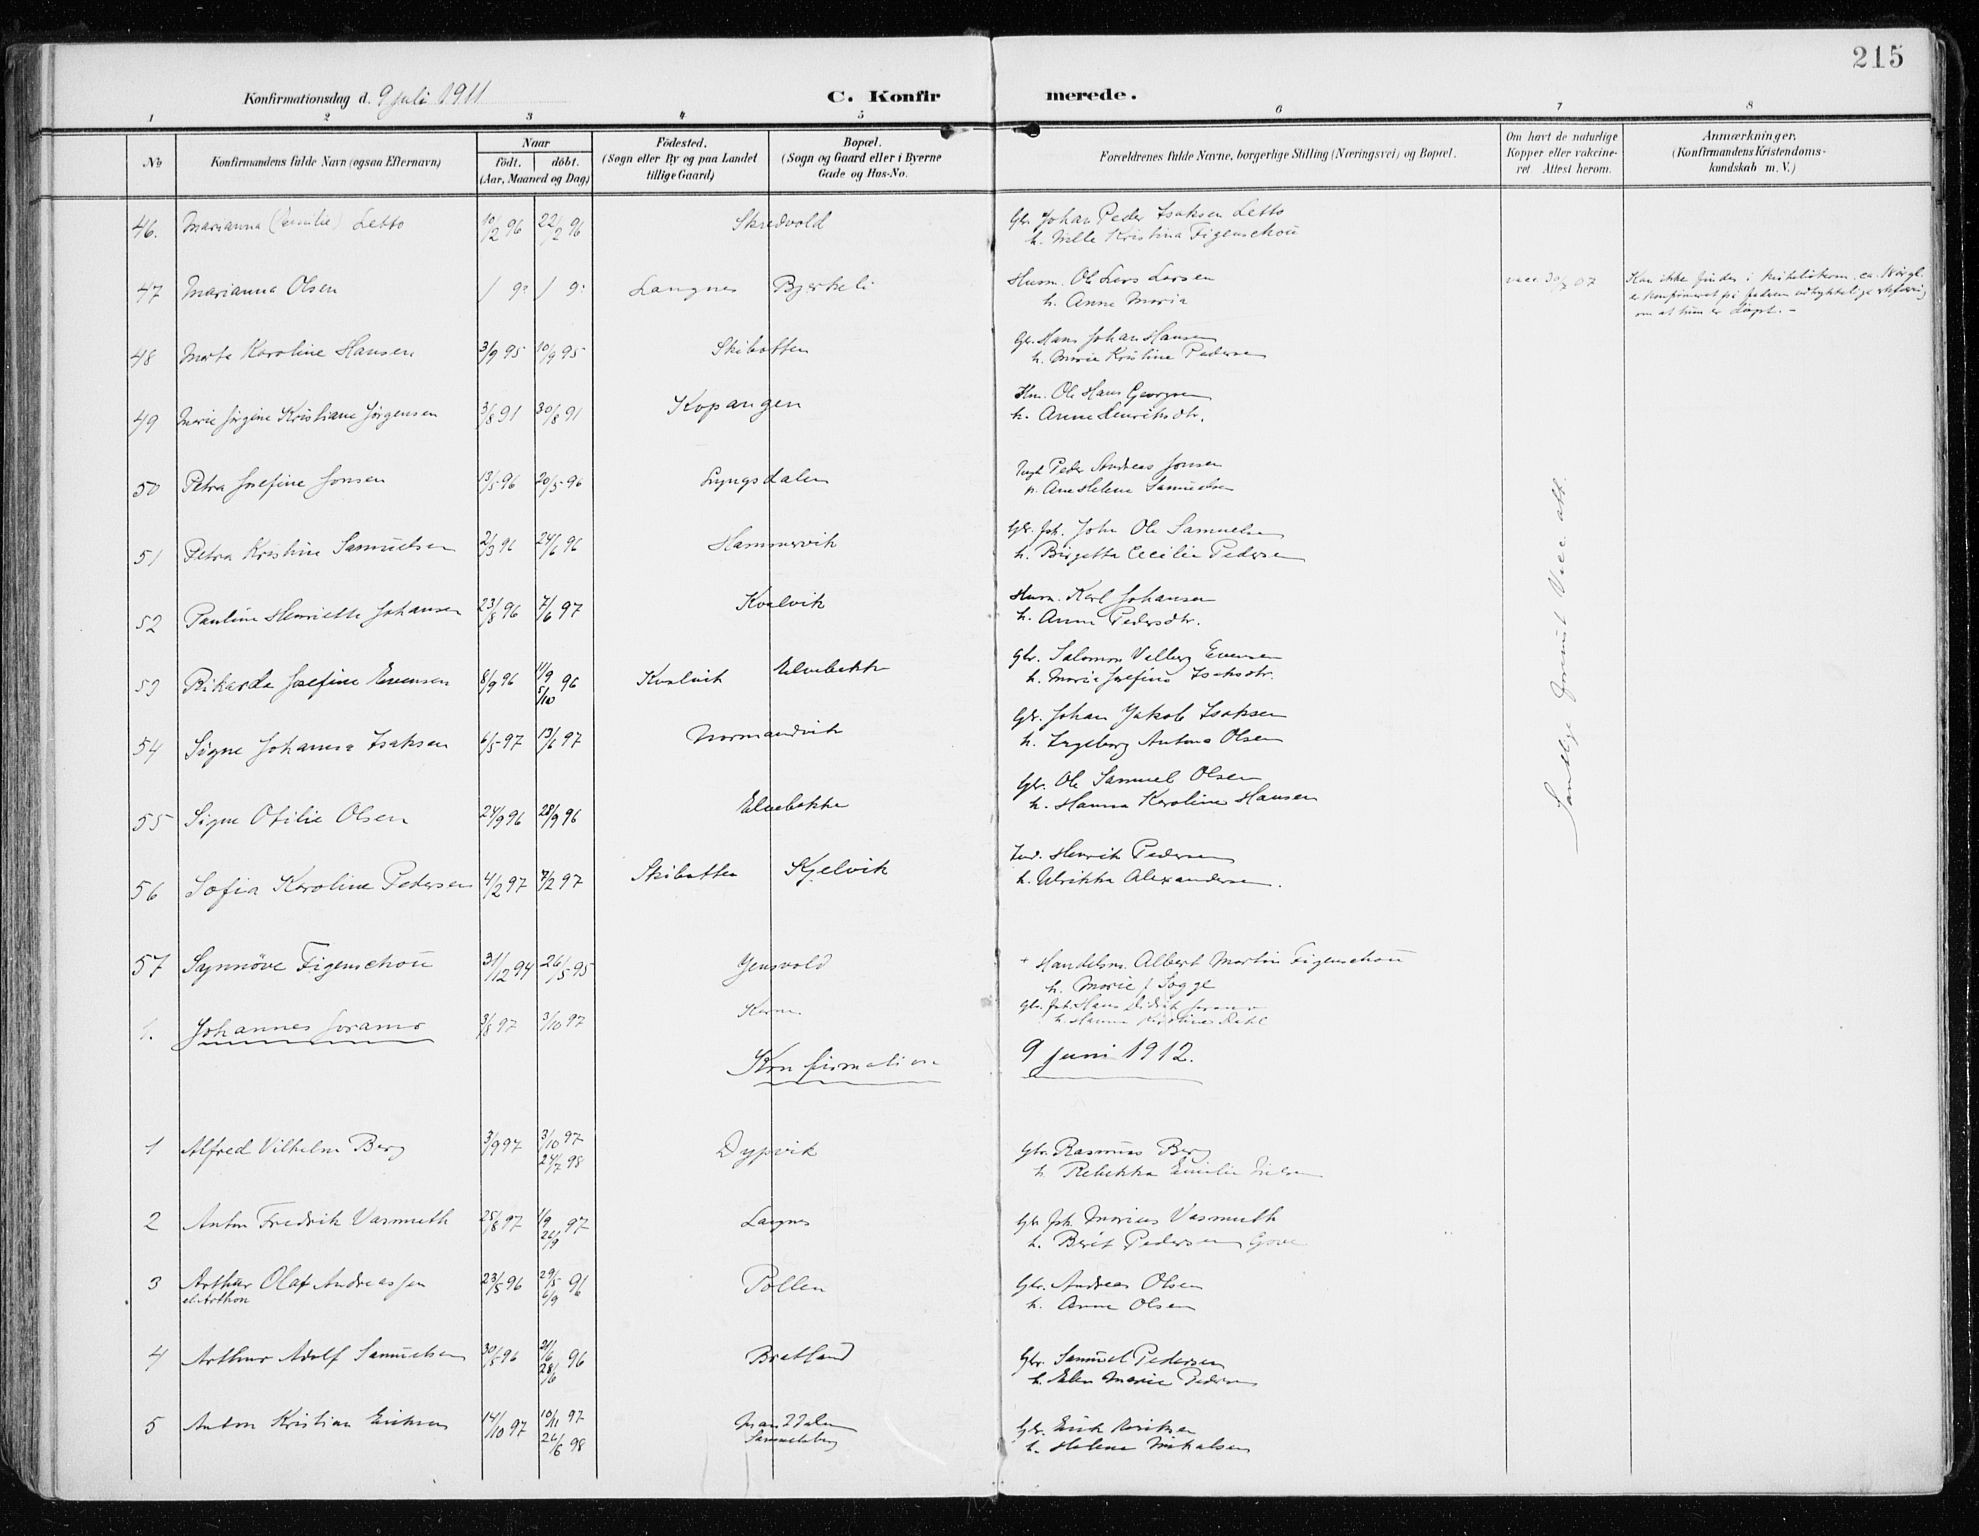 215
Konfirmationsdag d. 9 juli 1911
C. Konfirmerede.
1 2 3 4 5 6 7 8
No
Konfirmandens fulde Navn (ogsaa Efternavn)
Naar
født. døbt.
(Aar, Maaned og Dag)
Fødested.
(Sogn eller By og paa Landet
tillige Gaard)
Bopæl.
(Sogn og Gaard eller i Byerne
Gade og Hus-No.
Forældrenes fulde Navne, borgerlige Stilling (Næringsvei) og Bopæl.
Om havt de naturlige
Kopper eller vaccine-
ret Attest herom.
Anmærkninger.
(Konfirmandens Kristendoms-
kundskab m. V.)
46. Marianna Letto 10/2 96 22/2 96 Skredvold Gbr. Johan Peder Isaksen Letto
h. Nille Kristina Figenschou
47 Marianna Olsen Langnes Bjerkeli Husm. Ole Lars Larsen
h. Anne Maria
vacc. 30/7 07
Kan ikke findes i
er konfirmeret på fedrene udtrykkelige
om at hun er døpt. -
48 Marta Karoline Hansen 3/9 95 10/9 95 Skibotten Gbr. Hans Johan Hansen
h. Marie Kristine Pedersen
49 Marie Jørgine Kristiane Jørgensen 3/8 91 30/8 91 Kopangen Hm. Ole Hans Georgsen
h. Anne Henriksdtr.
50 Petra Josefine Jonsen 13/5 96 20/5 96 Lyngsdalen Peder Andreas Jonsen
h. Ane Helene Samuelsen
51 Petra Kristine Samuelsen 2/3 96 24/6 96 Hammervik Gbr. fisk. John Ole Samuelsen
h. Birgetta Cecilie Pedersen
52 Pauline Henriette Johansen 23/8 96 7/6 97 Kvalvik Husm. Karl Johansen
h. Anne Pedersdtr.
53 Rikarda Josefine Evensen 8/9 96 11/9 96 Kvalvik Elvebakke Gbr. Salomon Valberg Evensen
5/10
h. Marie Josefine Isaksdtr.
54 Signe Johanna Isaksen 6/5 97 13/6 97 Normandvik Gbr. Johan Jakob Isaksen
h. Ingeborg Antona Olsen
55 Signe Otilie Olsen 24/9 96 28/9 96 Elvebakke Gbr. Ole Samuel Olsen
h. Hanna Karoline Hansen
56 Sofia Karoline Pedersen 4/2 97 7/2 97 Skibotten Kjelvik Ind. Henrik Pedersen
h. Ulrikka Alexandersen.
Samtlige forevist Vacc. att.
57 Synnøve Figenschou 31/12 94 26/5 95 Jensvold + Handelsm. Albert Martin Figenschou
h. Marie f. Sogge
1. Johannes Joramo 3/8 97 3/10 97 Gbr. fisk. Hans Didrik Joramo
h. Hanna Kristine Dahl
Konfirmation 9 juni 1912.
1 Alfred Vilhelm Berg 3/9 97 3/10 97 Dypvik Gbr. Rasmus Berg
24/7 98
h. Rebekka Emilie Nilsen
2 Anton Fredrik Vasmuth 25/8 97 1/9 97 Langnes Gbr. fisk. Marius Vasmuth
h. Berit Pedersen
3 Arthur Olaf Andreassen 23/5 96 29/5 96 Pollen Gbr. Andreas Olsen
el. Arthon 6/9
h. Anne Olsen
4 Arthur Adolf Samuelsen 30/5 96 96 Bratland Gbr. Samuel Pedersen
28/6
h. Elen Marie Pedersen
5 Anton Kristian Eriksen 14/10 97 10/11 97 Manddalen Gbr. Erik Eriksen
26/6 98 Samuelsberg
h. Helene Mikalsen